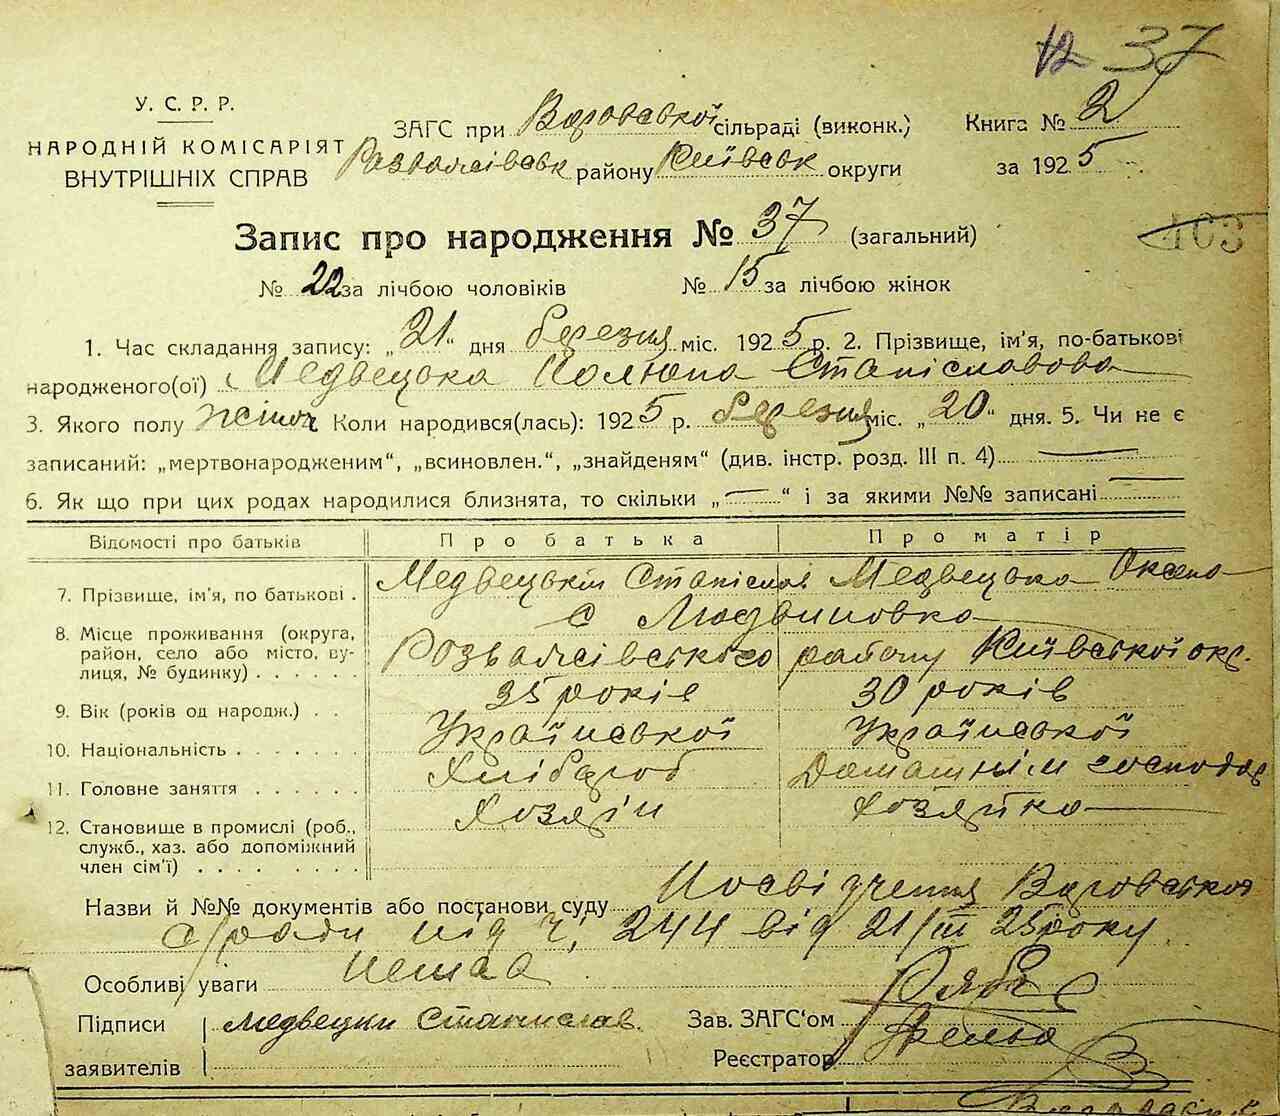 37
У. С. Р. Р.
НАРОДНІЙ КОМІСАРІЯТ
ВНУТРІШНІХ СПРАВ
ЗАГС при Варовської сільраді (виконк.)
Розважівськ району Київськ округи
Книга № 2
за 1925
Запис про народження № 37 (загальний)
103
№ 22 за лічбою чоловіків № 15 за лічбою жінок
1. Час складання запису: „21“ дня березня міс. 1925 р. 2. Прізвище, ім'я, по-батькові
народженого(ої) Медвецька Станіславова
3. Якого полу жіноч Коли народився(лась): 1925 р. березня міс. „20“ дня. 5. Чи не є
записаний: „мертвонародженим“, „всиновлен.“, „знайденям“ (див. інстр. розд. III п. 4) —
6. Як що при цих родах народилися близнята, то скільки „—“ і за якими №№ записані —
Відомості про батьків Про батька Про матір
7. Прізвище, ім'я, по батькові . Медвецькій Станіслав Медвецька Оксена
8. Місце проживання (округа, район, село або місто, вулиця, № будинку) . . . . . с Людвиновка
Розважівського району Київської окр.
9. Вік (років од народж.) . . 35 років 30 років
10. Національність . . . . . . . Української Української
11. Головне заняття . . . . . . Хлібороб Домашнім господар
12. Становище в промислі (роб., служб., хаз. або допоміжний член сім'ї) . . . . . . . . Хозяін Хозяйка
Назви й №№ документів або постанови суду Посвідчення Варовської
с/ради під ч. 244 від 21/III 25 року
Особливі уваги немає
Підписи заявителів Медвецки Станислав
Зав. ЗАГС'ом
Реєстратор